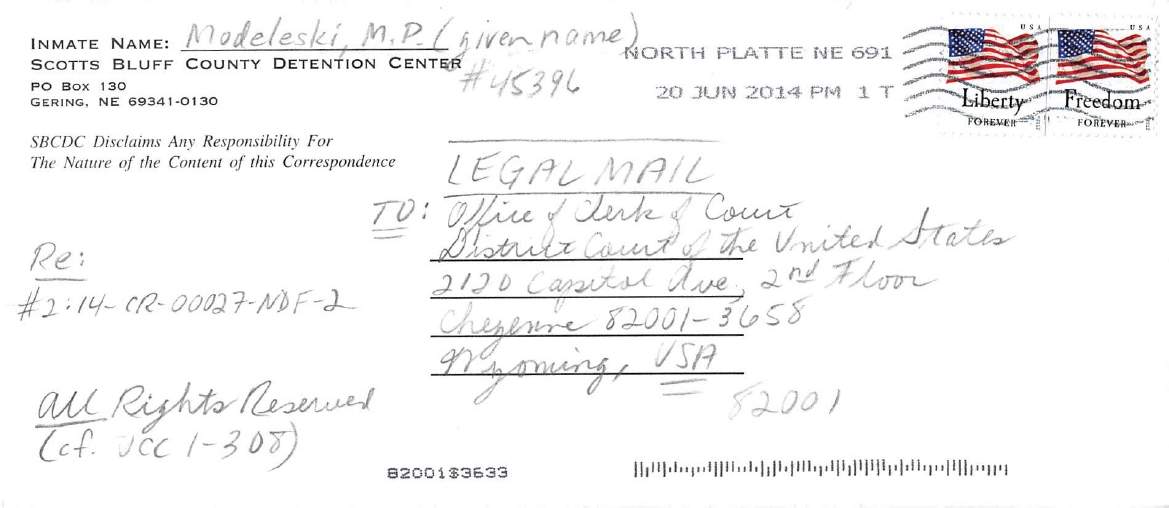 INMATE NAME: Modeleski, M.P. (given name)
SCOTTS BLUFF COUNTY DETENTION CENTER
#45396
PO BOX 130
GERING, NE 69341-0130
SBCDC Disclaims Any Responsibility For
The Nature of the Content of this Correspondence
NORTH PLATTE NE 691
20 JUN 2014 PM 1 T
USA
Liberty
FOREVER
USA
Freedom
FOREVER
LEGAL MAIL
TO: Office of Clerk of Court
District Court of the United States
2120 Capitol Ave, 2nd Floor
Cheyenne 82001-3658
Wyoming, USA
82001
Re:
#2:14-CR-00027-NDF-2
All Rights Reserved
(cf. UCC 1-308)
82001$3633